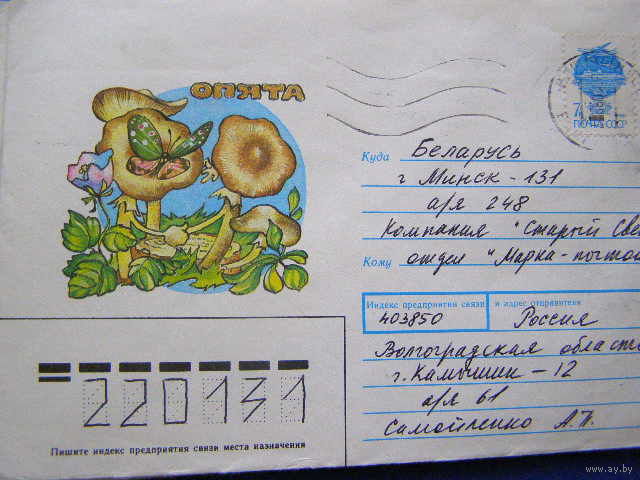 ОПЯТА
7
ПОЧТА СССР
Куда Беларусь
г Минск - 131
а/я 248
Компания "Старый Све
Кому отдел "Марка - почтой
Индекс предприятия связи и адрес отправителя
403850 Россия
Волгоградская област
г. Камышин - 12
а/я 61
Самойленко А.П.
220131
Пишите индекс предприятия связи места назначения
www.ay.by